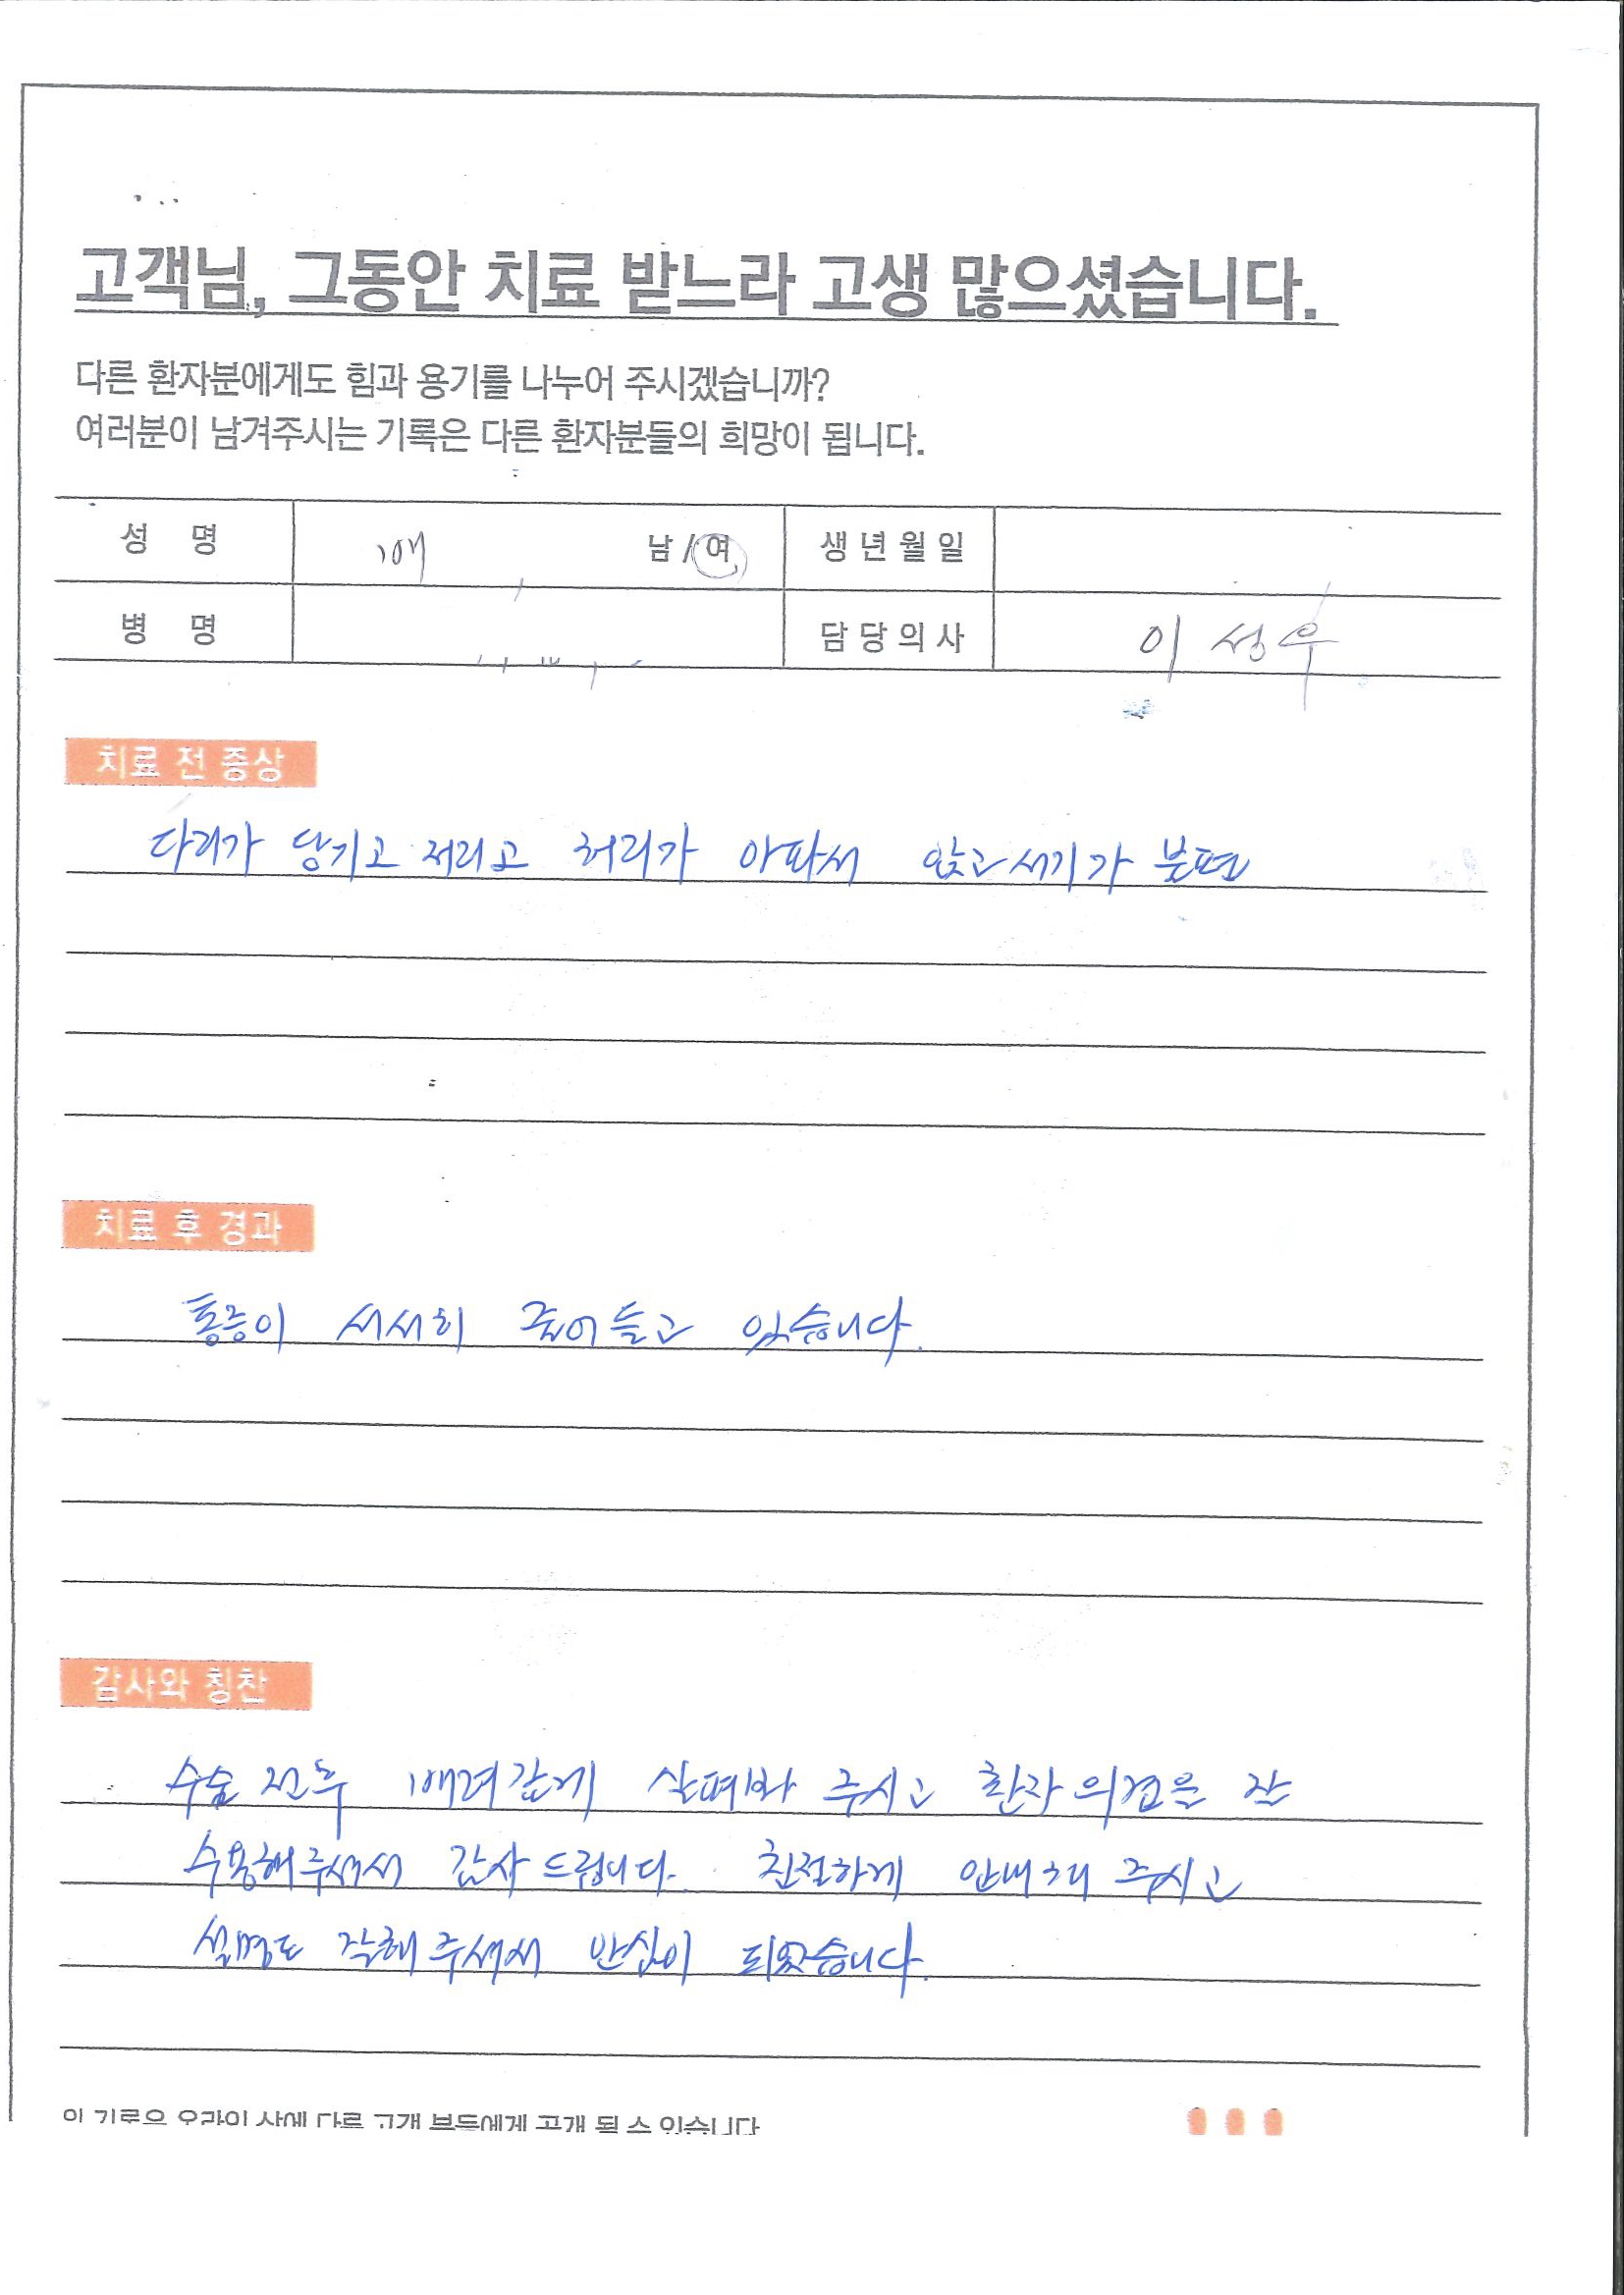 고객님, 그동안 치료 받느라 고생 많으셨습니다.
다른 환자분에게도 힘과 용기를 나누어 주시겠습니까?
여러분이 남겨주시는 기록은 다른 환자분들의 희망이 됩니다.
성 명 남 / 여 생년월일
병 명 담당의사 이성우
치료 전 증상
다리가 당기고 저리고 허리가 아파서 앉고 서기가 불편
치료 후 경과
통증이 서서히 줄어들고 있습니다.
감사와 칭찬
수술 전후 배려깊게 살펴봐 주시고 환자 의견을 잘
수용해주셔서 감사 드립니다. 친절하게 안내해 주시고
설명도 잘해 주셔서 안심이 되었습니다.
이 기록은 온라인 상에 다른 고객 분들에게 공개 될 수 있습니다